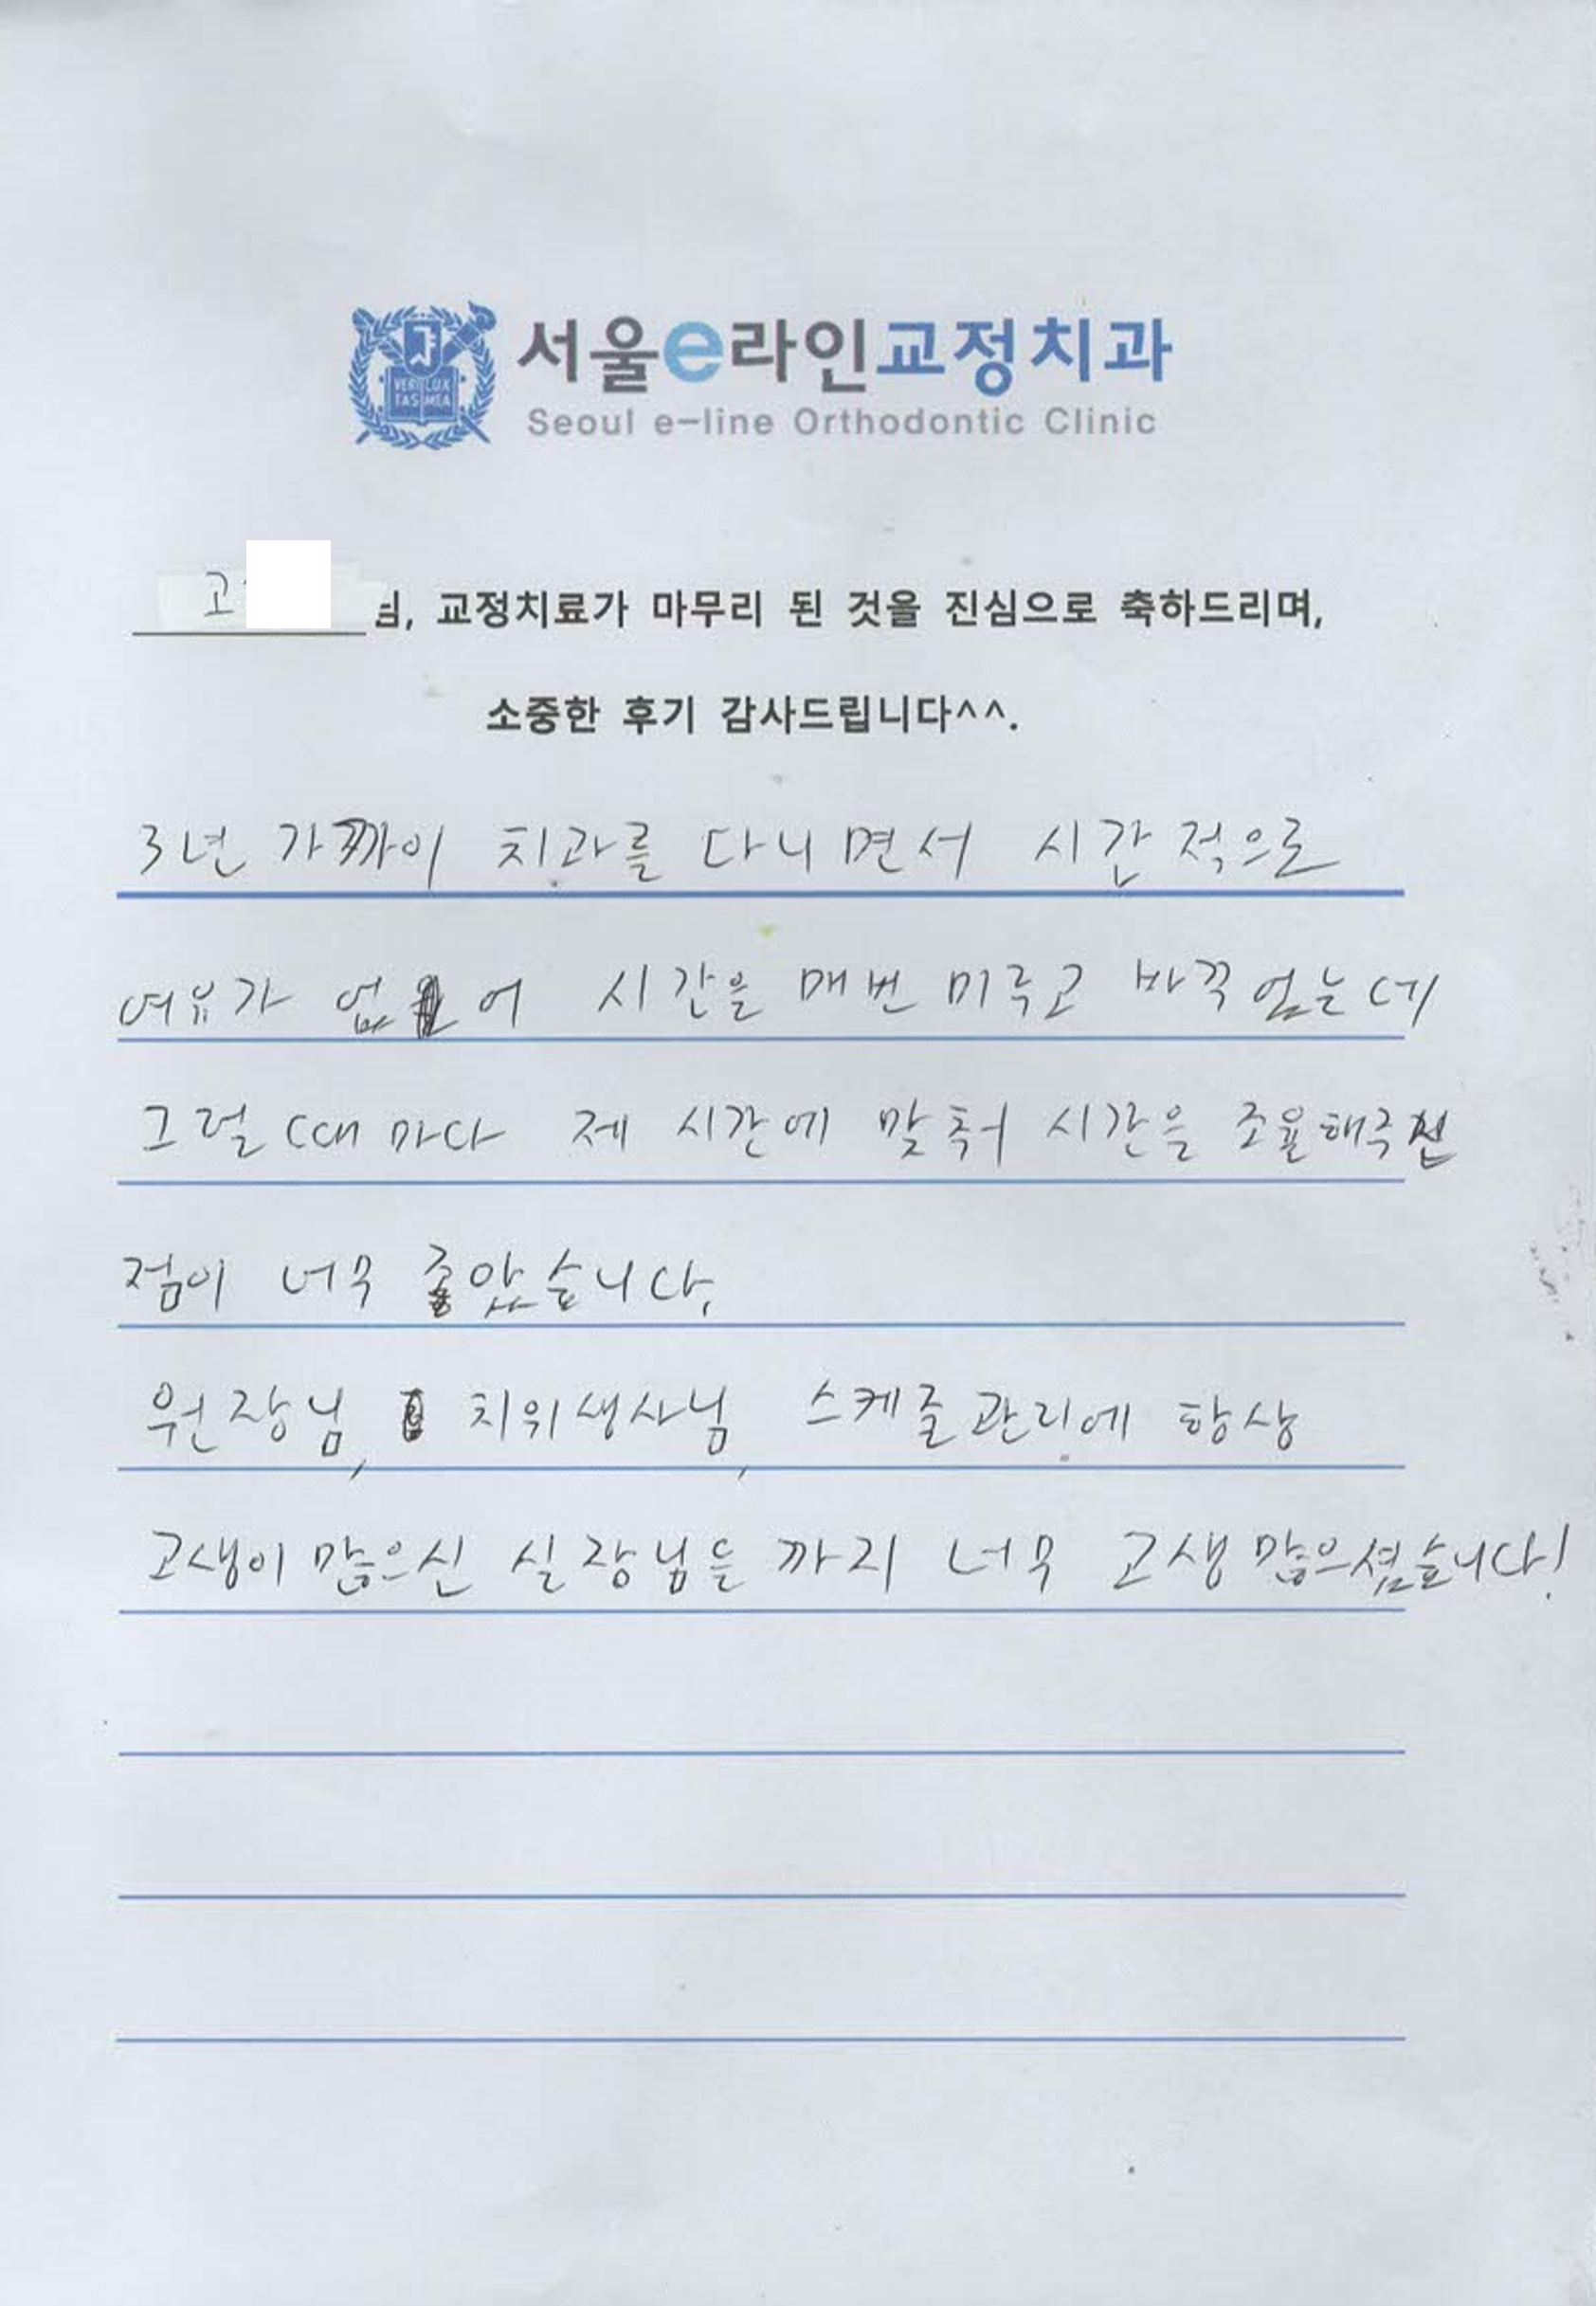 VERI LUX
TAS MEA
서울e라인교정치과
Seoul e-line Orthodontic Clinic
고 님, 교정치료가 마무리 된 것을 진심으로 축하드리며,
소중한 후기 감사드립니다^^.
3년 가까이 치과를 다니면서 시간적으로
여유가 없어 시간을 매번 미루고 바꾹었는데
그럴때마다 제 시간에 맞춰 시간을 조율해주신
점이 너무 좋았습니다.
원장님, 치위생사님, 스케줄관리에 항상
고생이 많으신 실장님들 까지 너무 고생 많으셨습니다!